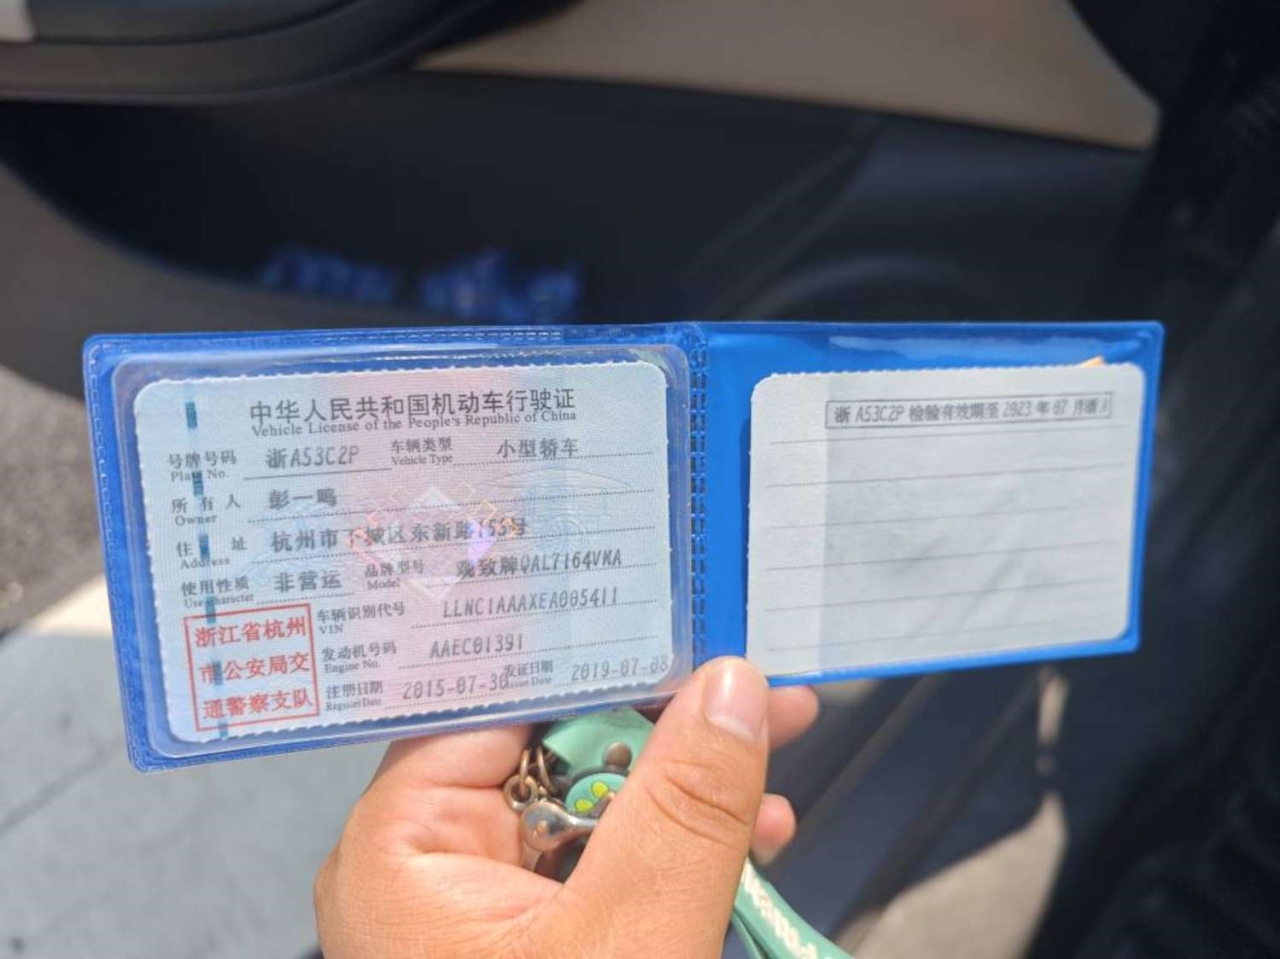 中华人民共和国机动车行驶证
Vehicle License of the People's Republic of China
号牌号码 浙A53C2P 车辆类型 小型轿车
Plate No. Vehicle Type
所有人 彭一鸣
Owner
住址 杭州市下城区东新路155号
Address
使用性质 非营运 品牌型号 观致牌QAL7164VKA
Use Character Model
车辆识别代号 LLNC1AAAXEA005411
VIN
发动机号码 AAEC01391
Engine No.
注册日期 2015-07-30 发证日期 2019-07-08
Register Date Issue Date
浙江省杭州
市公安局交
通警察支队
浙A53C2P 检验有效期至 2023年07月